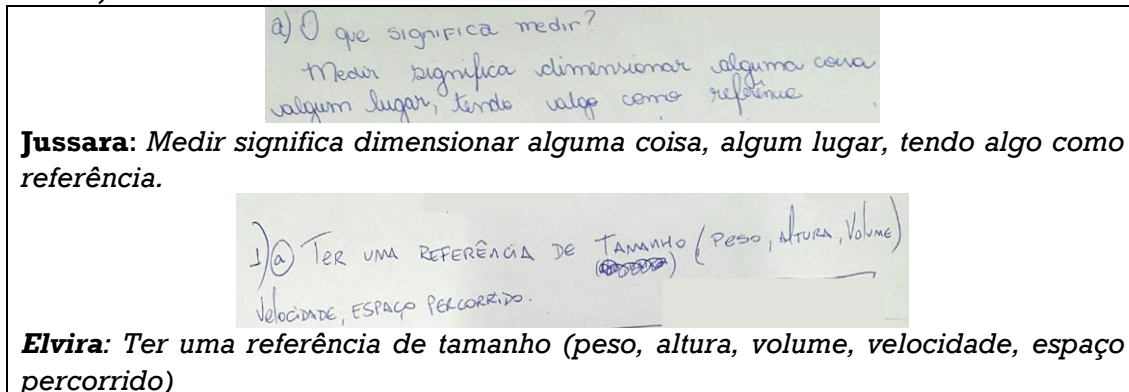 a) O que significa medir?
Medir significa dimensionar alguma coisa
algum lugar, tendo algo como referência
Jussara: Medir significa dimensionar alguma coisa, algum lugar, tendo algo como
referência.
1) a) TER UMA REFERÊNCIA DE TAMANHO (PESO, ALTURA, VOLUME)
VELOCIDADE, ESPAÇO PERCORRIDO.
Elvira: Ter uma referência de tamanho (peso, altura, volume, velocidade, espaço
percorrido)